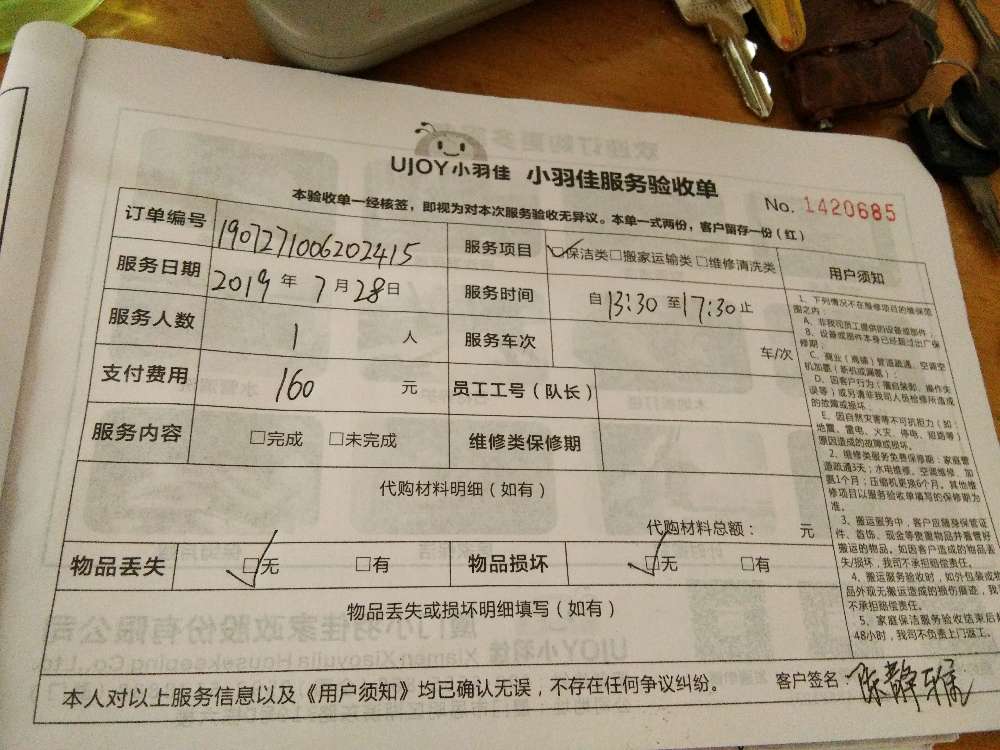 UJOY小羽佳 小羽佳服务验收单
No. 1420685
本验收单一经核签，即视为对本次服务验收无异议。本单一式两份，客户留存一份（红）
订单编号 1907271006202415 服务项目 ☑保洁类□搬家运输类□维修清洗类
服务日期 2019年7月28日 服务时间 自13:30至17:30止
服务人数 1 人 服务车次 车/次
支付费用 160 元 员工工号（队长）
服务内容 □完成 □未完成 维修类保修期
代购材料明细（如有）
代购材料总额： 元
物品丢失 ☑无 □有 物品损坏 ☑无 □有
物品丢失或损坏明细填写（如有）
本人对以上服务信息以及《用户须知》均已确认无误，不存在任何争议纠纷。 客户签名：陈静
用户须知
1、下列情况不在维修项目的维保范
围之内：
A、非我司员工提供的设备或部件；
B、设备或部件本身已经超过出厂保
修期；
C、商业（高端）管道疏通，空调空
机加氨（新机或漏氨）；
D、因客户行为（擅自装卸、操作失
误等）或另请非我司人员检修所造成
的故障或损坏；
E、因自然灾害等不可抗拒力（如：
地震、雷电、火灾、停电、短路等）
原因造成的故障或损坏。
2、维修类服务免费保修期：家庭管
道疏通3天；水电维修、空调维修、加
氨1个月；压缩机更换6个月。其他维
修项目以服务验收单填写的保修期为
准。
3、搬运服务中，客户应随身保管证
件、首饰、现金等贵重物品并看管好
搬运的物品。如因客户造成的物品丢
失/损坏，我司不承担赔偿责任。
4、搬运服务验收时，如外包装或物
品外观无搬运造成的损伤痕迹，我
不承担赔偿责任。
5、家庭保洁服务验收结束后
48小时，我司不负责上门返工。